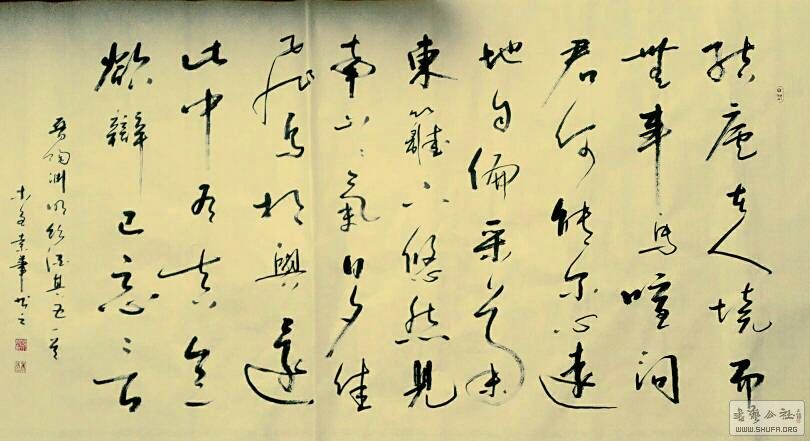 結廬在人境而
無車馬喧問
君何能尔心遠
地自偏采菊
東籬下悠然見
南山〻氣日夕佳
飛鳥相與還
此中有真意
欲辯已忘言
晋陶渊明飲酒其五一首
书艺公社
WWW.SHUFA.ORG